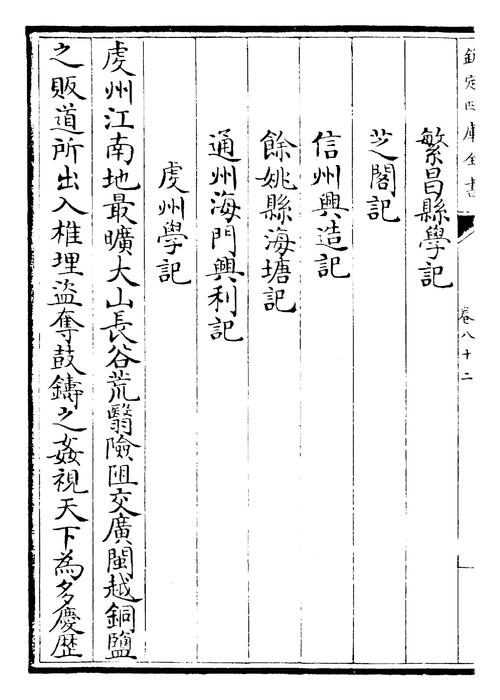 欽定四庫全書
卷八十二
繁昌縣學記
芝閣記
信州興造記
餘姚縣海塘記
通州海門興利記
虔州學記
虔州江南地最曠大山長谷荒翳險阻交廣閩越銅鹽
之販道所出入椎埋盜奪鼓鑄之姦視天下為多慶歴